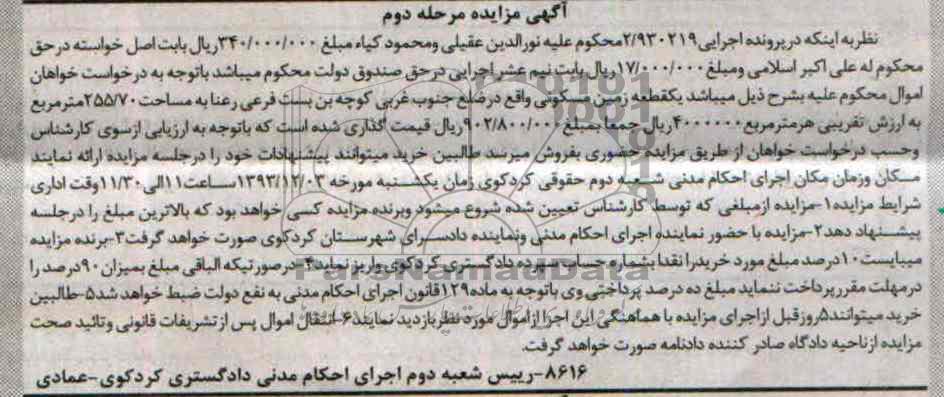 آگهی مزایده مرحله دوم
نظربه اینکه درپرونده اجرایی۲/۹۳۰۲۱۹محکوم علیه نورالدین عقیلی ومحمود کیاء مبلغ ۳۴۰/۰۰۰/۰۰۰ریال بابت اصل خواسته درحق
محکوم له علی اکبر اسلامی ومبلغ۱۷/۰۰۰/۰۰۰ریال بابت نیم عشر اجرایی درحق صندوق دولت محکوم میباشد باتوجه به درخواست خواهان
اموال محکوم علیه بشرح ذیل میباشد یکقطعه زمین مسکونی واقع درضلع جنوب غربی کوچه بن بست فرعی رعنا به مساحت۲۵۵/۷۰مترمربع
به ارزش تقریبی هرمترمربع۴۰۰۰۰۰۰ریال جمعا بمبلغ۹۰۲/۸۰۰/۰۰۰ریال قیمت گذاری شده است که باتوجه به ارزیابی ازسوی کارشناس
وحسب درخواست خواهان از طریق مزایده حضوری بفروش میرسد طالبین خرید میتوانند پیشنهادات خود را درجلسه مزایده ارائه نمایند
مکان وزمان مکان اجرای احکام مدنی شعبه دوم حقوقی کردکوی زمان یکشنبه مورخه ۱۳۹۳/۱۲/۰۳ساعت۱۱الی۱۱/۳۰وقت اداری
شرایط مزایده۱-مزایده ازمبلغی که توسط کارشناس تعیین شده شروع میشود وبرنده مزایده کسی خواهد بود که بالاترین مبلغ را درجلسه
پیشنهاد دهد۲-مزایده با حضور نماینده اجرای احکام مدنی ونماینده دادسرای شهرستان کردکوی صورت خواهد گرفت۳-برنده مزایده
میبایست۱۰درصد مبلغ مورد خریدرا نقدا بشماره حساب سپرده دادگستری کردکوی واریز نماید۴-درصورتیکه الباقی مبلغ بمیزان۹۰درصد را
درمهلت مقررپرداخت ننماید مبلغ ده درصد پرداختی وی باتوجه به ماده۱۲۹قانون اجرای احکام مدنی به نفع دولت ضبط خواهد شد۵-طالبین
خرید میتوانند۵روزقبل ازاجرای مزایده با هماهنگی این اجرا ازاموال مورد نظربازدید نمایند۶-انتقال اموال پس ازتشریفات قانونی وتائید صحت
مزایده ازناحیه دادگاه صادر کننده دادنامه صورت خواهد گرفت.
۸۶۱۶-رییس شعبه دوم اجرای احکام مدنی دادگستری کردکوی-عمادی
ParsNamadData